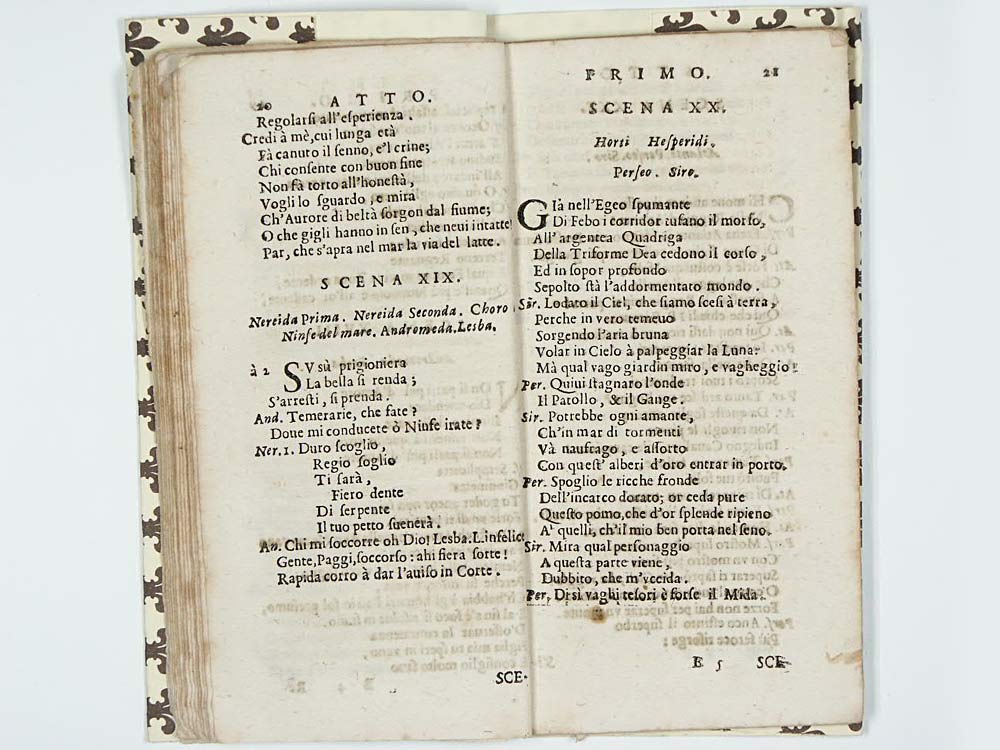 20 ATTO.
Regolarsi all'esperienza.
Credi à mè, cui lunga età
Fà canuto il senno, e'l crine;
Chi consente con buon fine
Non fà torto all'honestà,
Vogli lo sguardo, e mira
Ch'Aurore di beltà sorgon dal fiume;
O che gigli hanno in sen, che neui intatte!
Par, che s'apra nel mar la via del latte.
SCENA XIX.
Nereida Prima. Nereida Seconda. Choro
Ninfe del mare. Andromeda. Lesba.
à 2 SV sù prigioniera
La bella si renda;
S'arresti, si prenda.
And. Temerarie, che fate?
Doue mi conducete ò Ninfe irate?
Ner. 1. Duro scoglio,
Regio soglio
Ti sarà,
Fiero dente
Di serpente
Il tuo petto suenerà.
An. Chi mi soccorre oh Dio! Lesba. L.infelice
Gente, Paggi, soccorso: ahi fiera sorte!
Rapida corro à dar l'auiso in Corte.
SCE-
PRIMO. 21
SCENA XX.
Horti Hesperidi.
Perseo. Siro.
GIà nell'Egeo spumante
Di Febo i corridor tufano il morso,
All'argentea Quadriga
Della Triforme Dea cedono il corso,
Ed in sopor profondo
Sepolto stà l'addormentato mondo.
Sir. Lodato il Ciel, che siamo scesi à terra,
Perche in vero temeuo
Sorgendo l'aria bruna
Volar in Cielo à palpeggiar la Luna.
Mà qual vago giardin miro, e vagheggio!
Per. Quiui stagnaro l'onde
Il Patollo, & il Gange.
Sir. Potrebbe ogni amante,
Ch'in mar di tormenti
Và naufrago, e assorto
Con quest' alberi d'oro entrar in porto.
Per. Spoglio le ricche fronde
Dell'incarco dorato; or ceda pure
Questo pomo, che d'or splende ripieno
A' quelli, ch'il mio ben porta nel seno.
Sir. Mira qual personaggio
A questa parte viene,
Dubbito, che m'vccida.
Per. Di sì vaghi tesori è forse il Mida.
B 5 SCE-